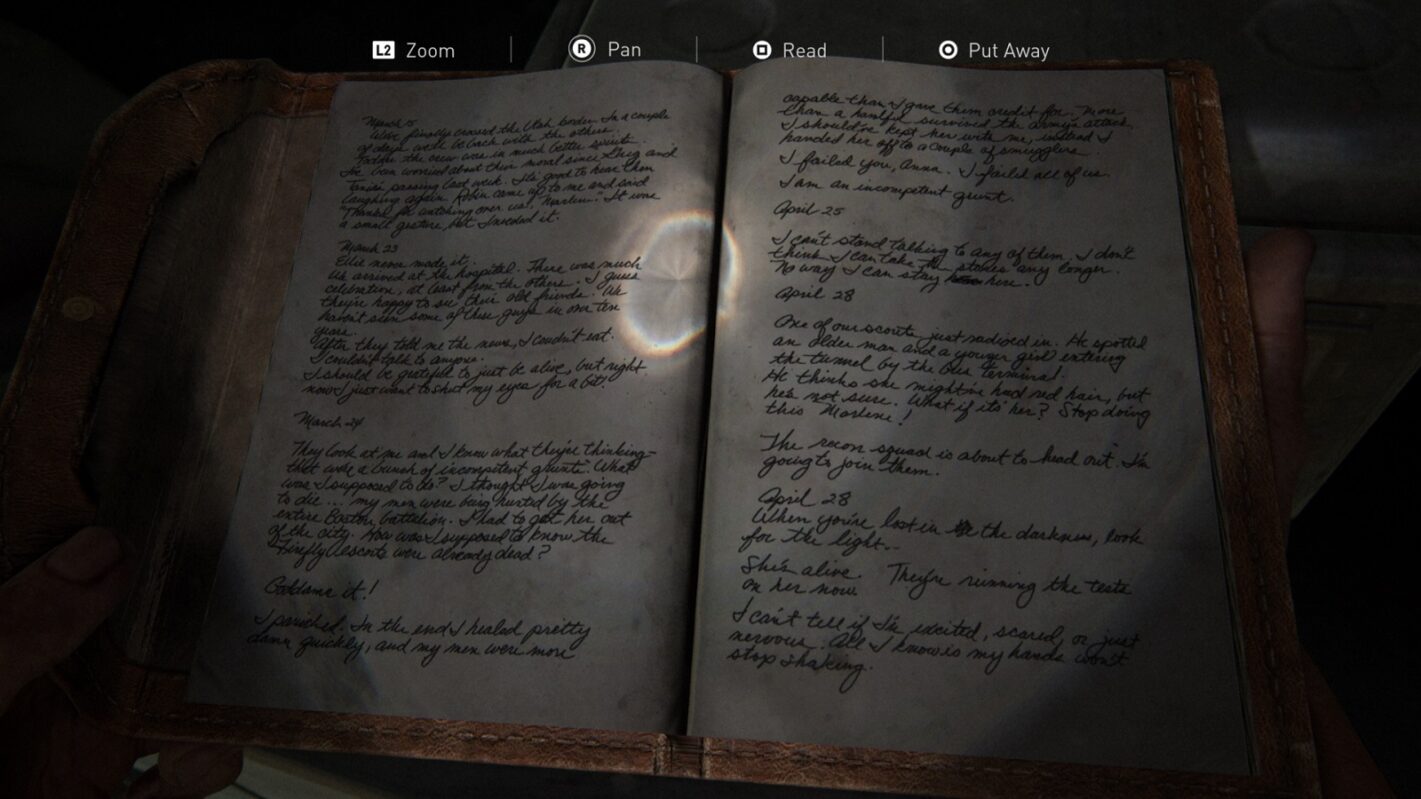 L2 Zoom
R Pan
Read
Put Away
March 15
We've finally crossed the Utah border. In a couple
of days we'll be back with the others.
Today the crew was in much better spirits.
I've been worried about their moral since Greg and
passing last week. It's good to hear them
laughing again. Robin came up to me and said
"Thanks for watching over us, Marlene." It was
a small gesture, but I needed it.
March 23
Ellie never made it.
We arrived at the hospital. There was much
celebration, at least from the others. I guess
they're happy to see their old friends. We
haven't seen some of these guys in over ten
years.
After they told me the news, I couldn't eat.
I couldn't talk to anyone.
I should be grateful to just be alive, but right
now I just want to shut my eyes for a bit.
March 24
They look at me and I know what they're thinking-
that was a bunch of incompetent grunts. What
was I supposed to do? I thought I was going
to die... my men were being hunted by the
entire Boston battalion. I had to get her out
of the city. How was I supposed to know the
Firefly escorts were already dead?
Goddamn it!
I panicked. In the end I healed pretty
damn quickly, and my men were more
capable than I gave them credit for. More
than a handful survived the army's attack.
I should've kept her with me, instead I
handed her off to a couple of smugglers.
I failed you, Anna. I failed all of us.
I am an incompetent grunt.
April 25
I can't stand talking to any of them. I don't
think I can take the stares any longer.
No way I can stay here.
April 28
One of our scouts just radioed in. He spotted
an older man and a younger girl entering
the tunnel by the bus terminal.
He thinks she might've had red hair, but
he's not sure. What if it's her? Stop doing
this Marlene!
The recon squad is about to head out. I'm
going to join them.
April 28
When you're lost in the darkness, look
for the light...
She's alive. They're running the tests
on her now.
I can't tell if I'm excited, scared, or just
nervous. All I know is my hands won't
stop shaking.